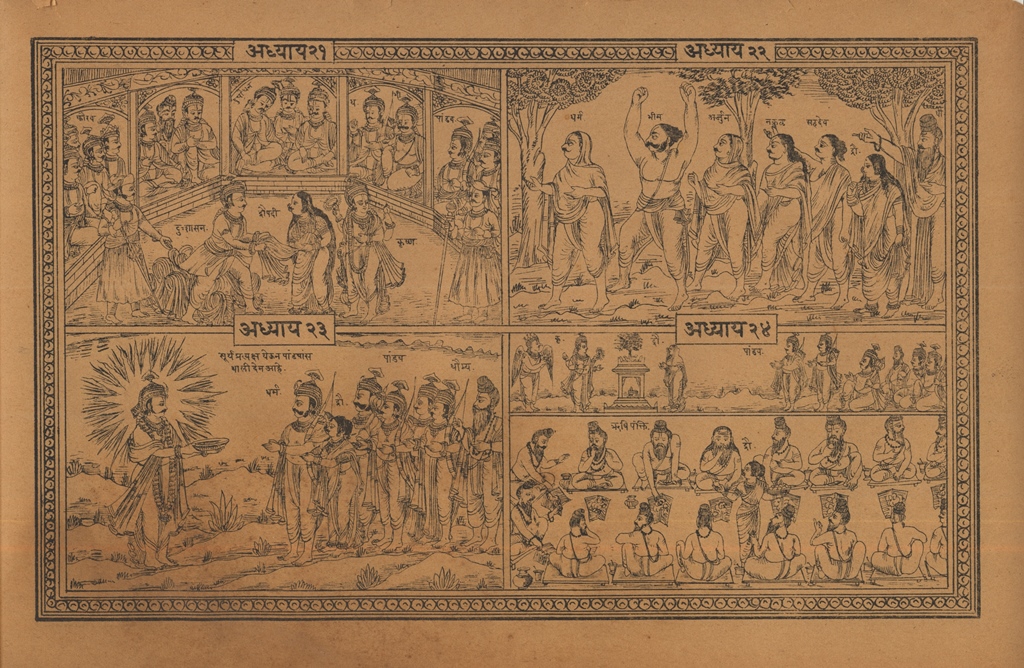 अध्याय २१
कौरव
पांडव
दुःशासन.
द्रौपदी
कृष्ण.
अध्याय २२
धर्म
भीम
अर्जुन
नकुळ
सहदेव
द्रौ.
अध्याय २३
सूर्य प्रत्यक्ष येऊन पांडवास
थाली देत आहे.
धर्म
द्रौ.
पांडव
धौम्य.
अध्याय २४
कृ.
द्रौ.
पांडव.
ऋषि पंक्ति.
द्रौ.